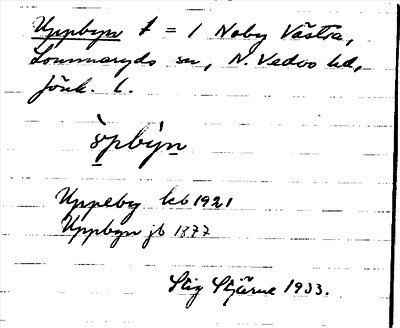 Uppbyn t = / Noby Västra,
Lommaryds sn, N. Vedbo hd,
Jönk. l.
òpbýn
Uppeby kb 1921
Uppbyn jb 1877
Stig Stjärne 1933.